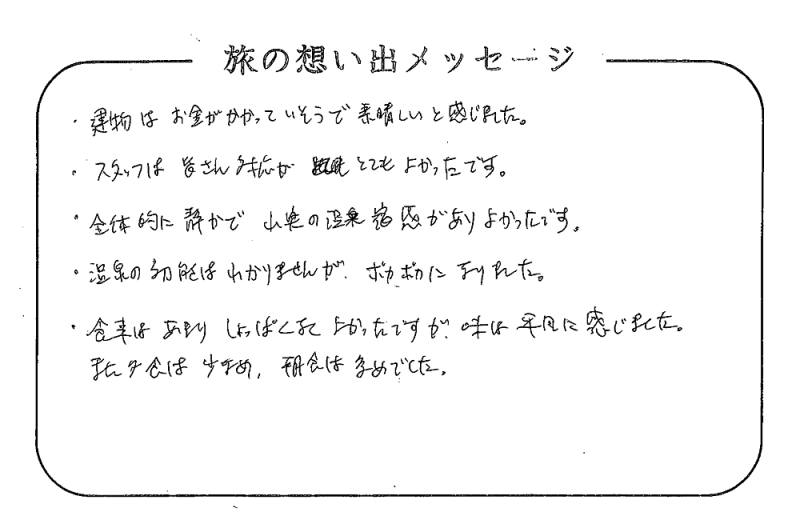 旅の想い出メッセージ
・建物は お金がかかっていそうで 素晴しいと感じました。
・スタッフは 皆さん 対応が とてもよかったです。
・全体的に 静かで 山奥の温泉宿感がありよかったです。
・温泉の効能は わかりませんが、ポカポカに なりました。
・食事は あまり しょっぱくなく よかったですが、味は 平凡に 感じました。
また夕食は 少なめ、朝食は 多めでした。